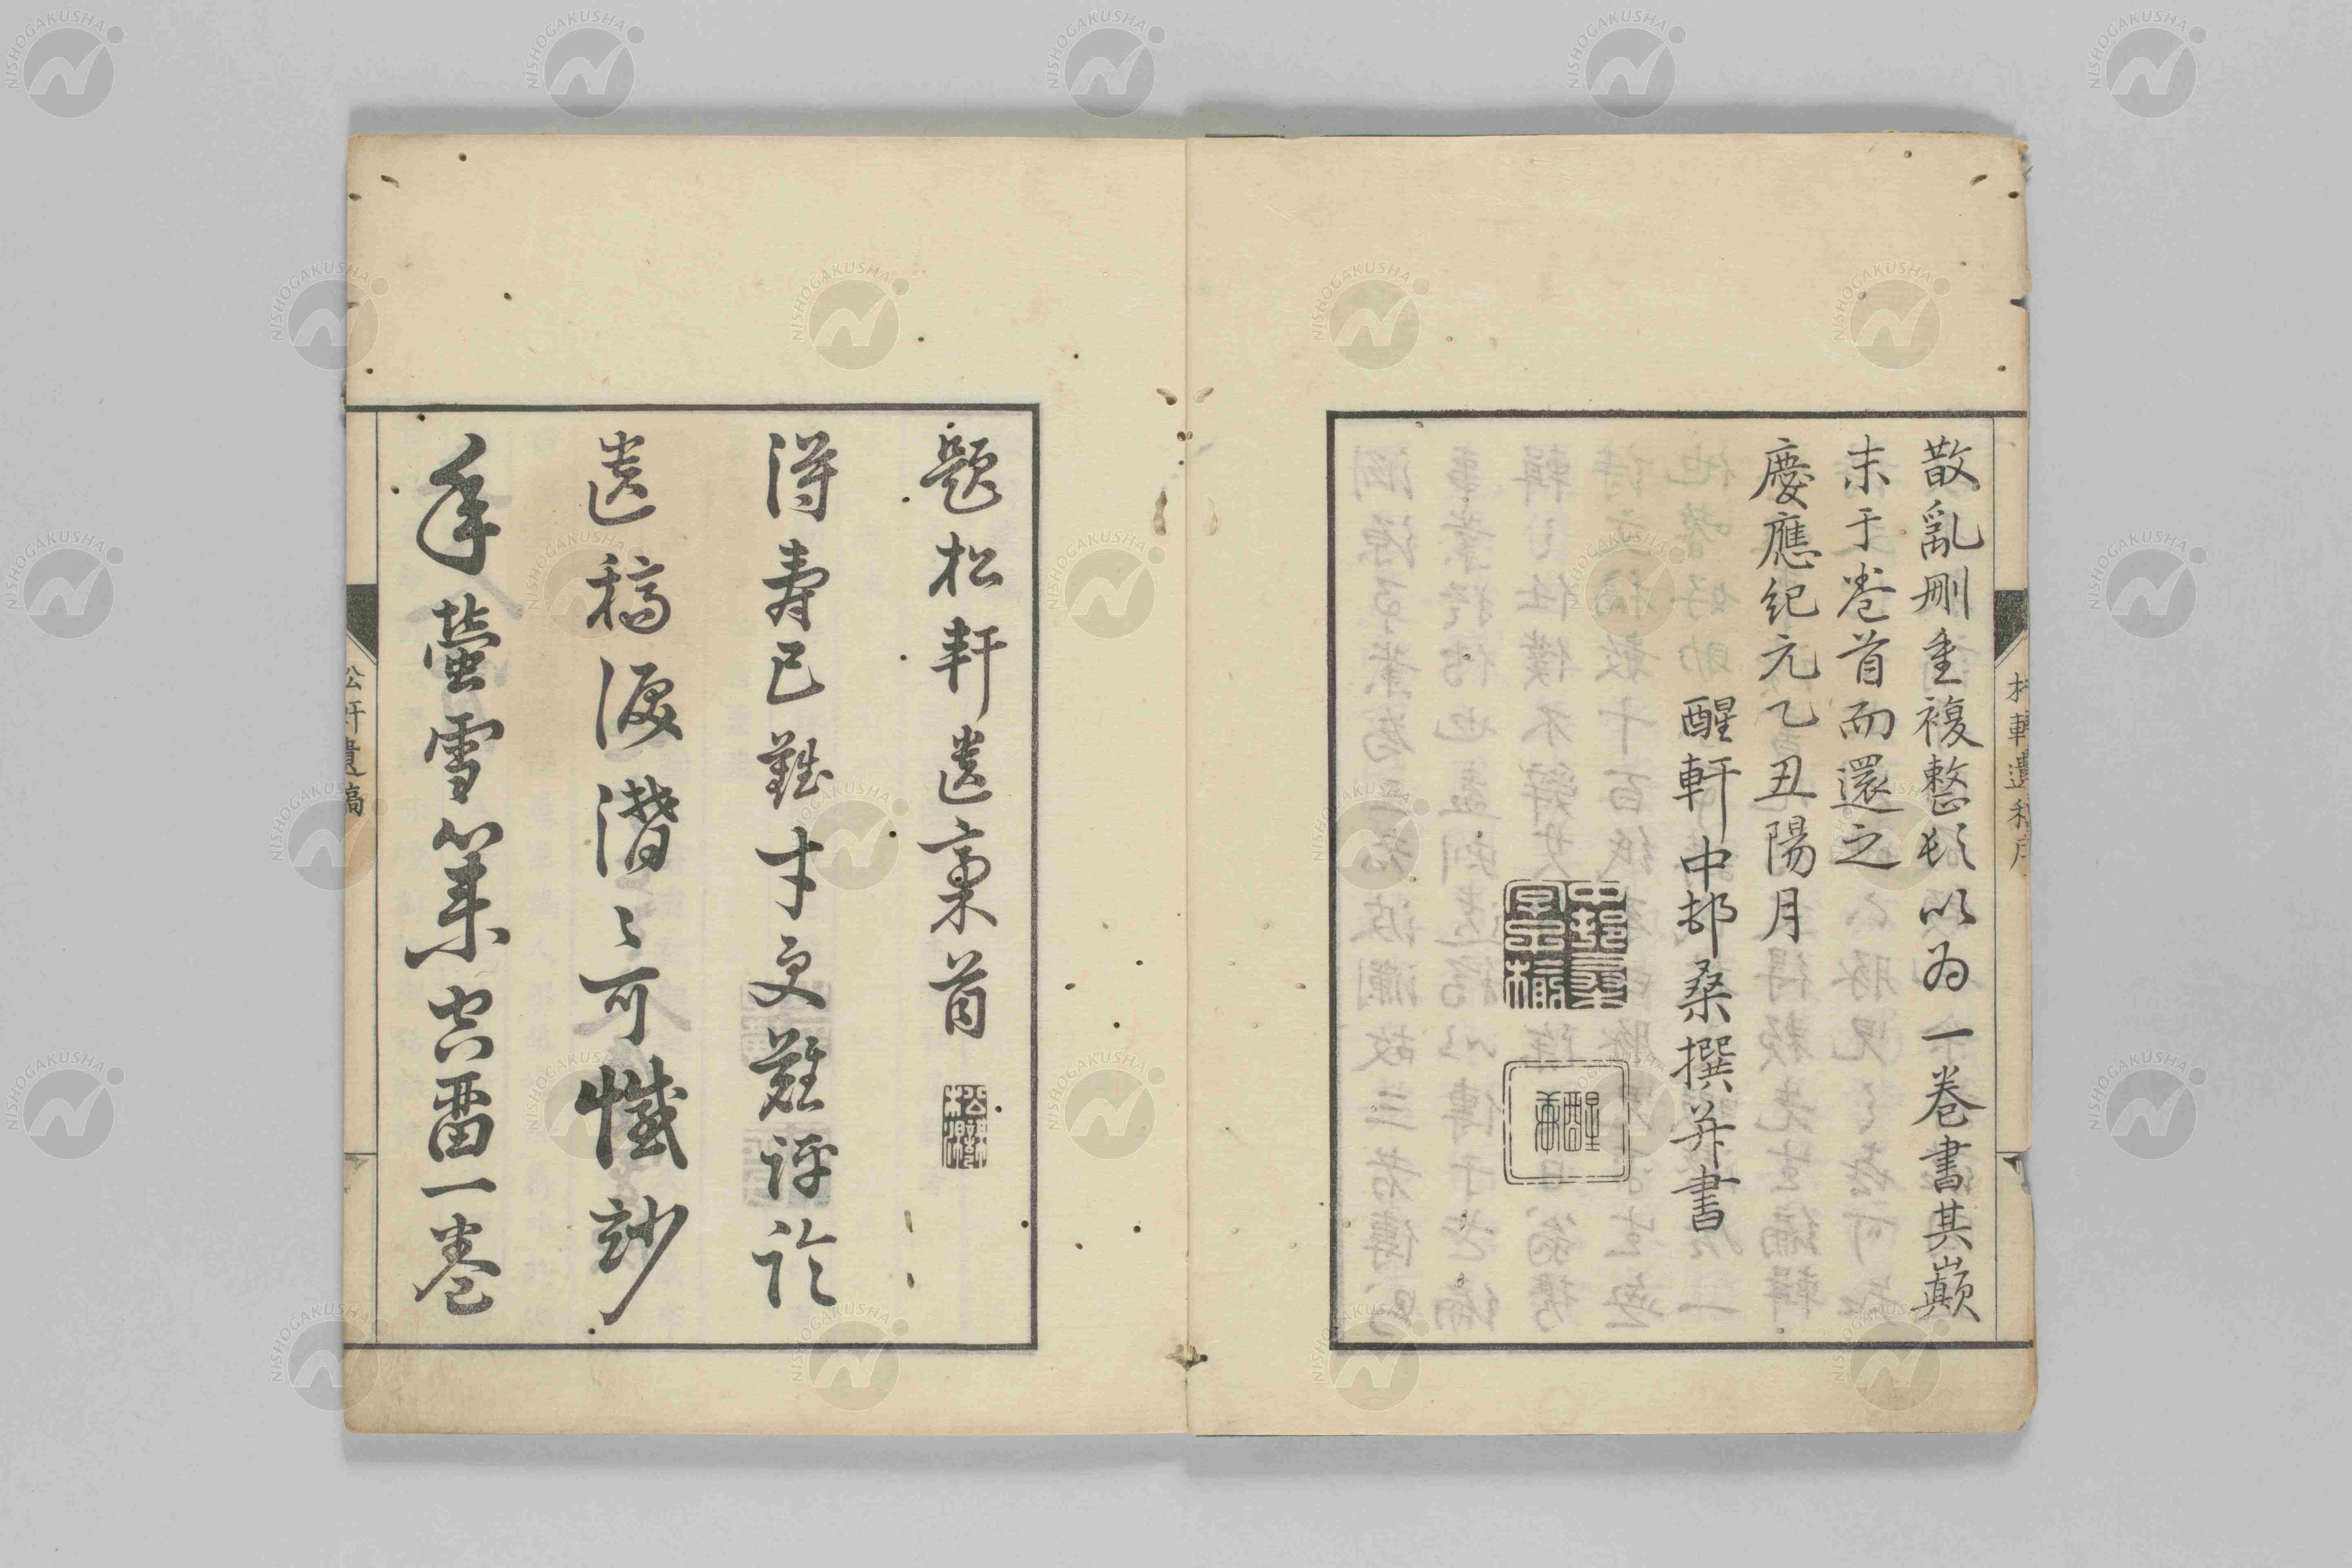 散亂刪重複整頓以為一卷書其巔
末于卷首而還之
慶應紀元乙丑陽月
醒軒中邨桑撰并書
題松軒遺稾首
得壽已難才更難評論
遺稿淚潸〻可懺玅
年螢雪業空留一卷
松軒遺稿
NISHOGAKUSHA